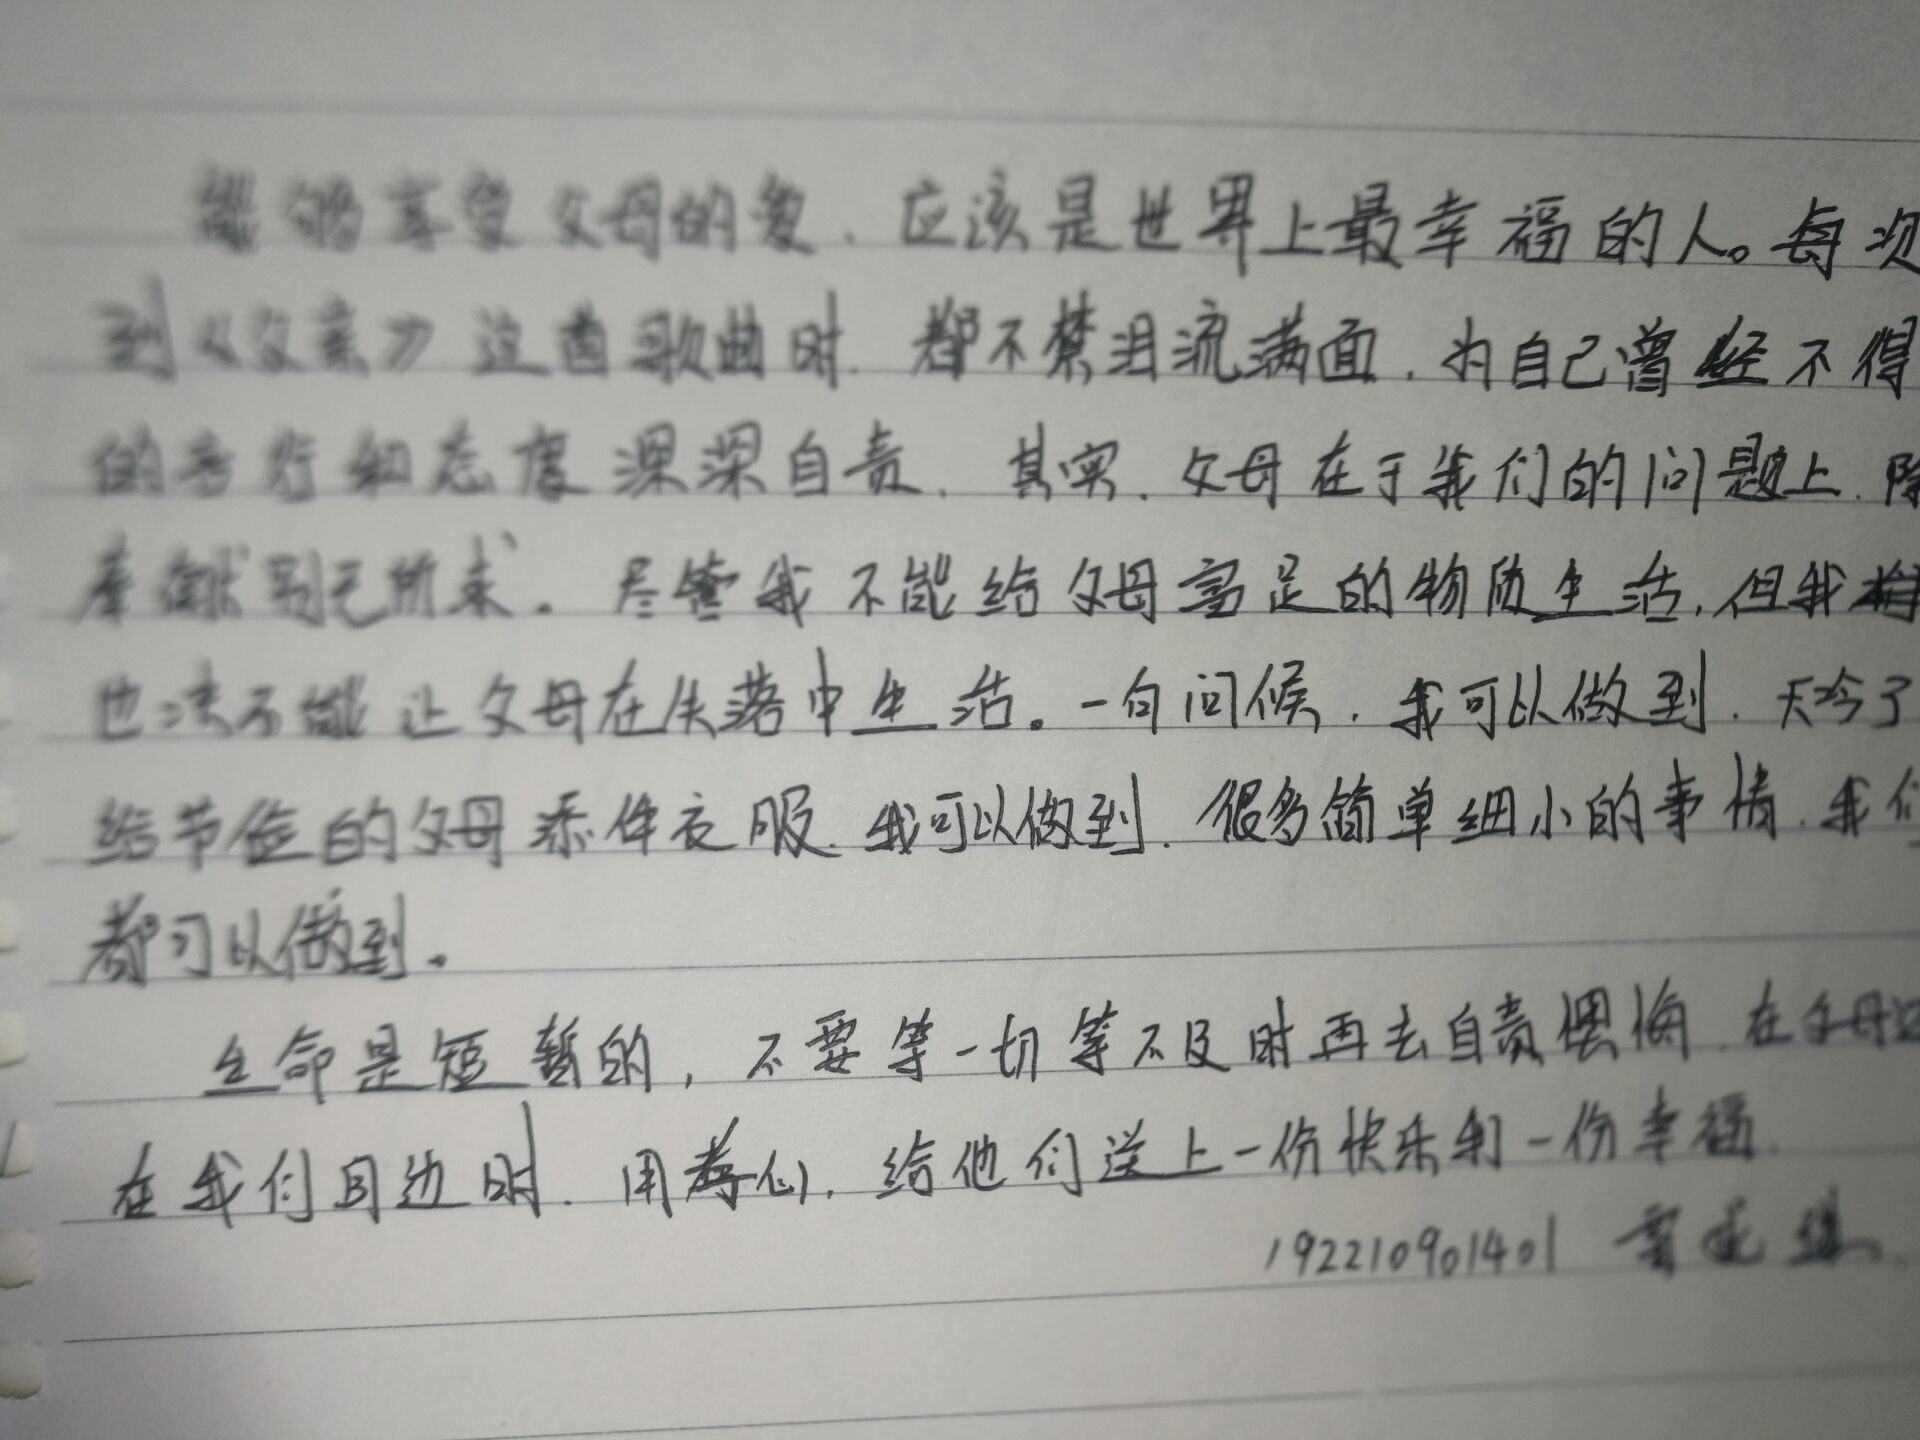 能够享受父母的爱,应该是世界上最幸福的人。每次
到《父亲》这首歌曲时,都不禁泪流满面,为自己曾经不得
的言行和态度深深自责,其实,父母在于我们的问题上,除
奉献别无所求。尽管我不能给父母富足的物质生活,但我
也决不能让父母在失落中生活。一句问候,我可以做到,天冷了
给节俭的父母添件衣服,我可以做到,很多简单细小的事情,我们
都可以做到。
生命是短暂的,不要等一切等不及时再去自责懊悔,在父母还
在我们身边时,用孝心,给他们送上一份快乐和一份幸福.
192210901401